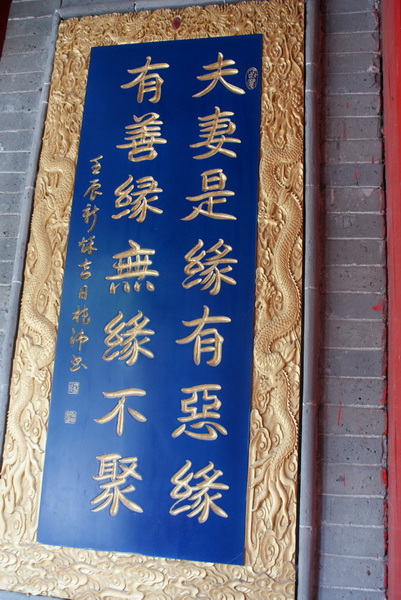 夫妻是缘有惡缘
有善缘無缘不聚
壬辰新秋吉日